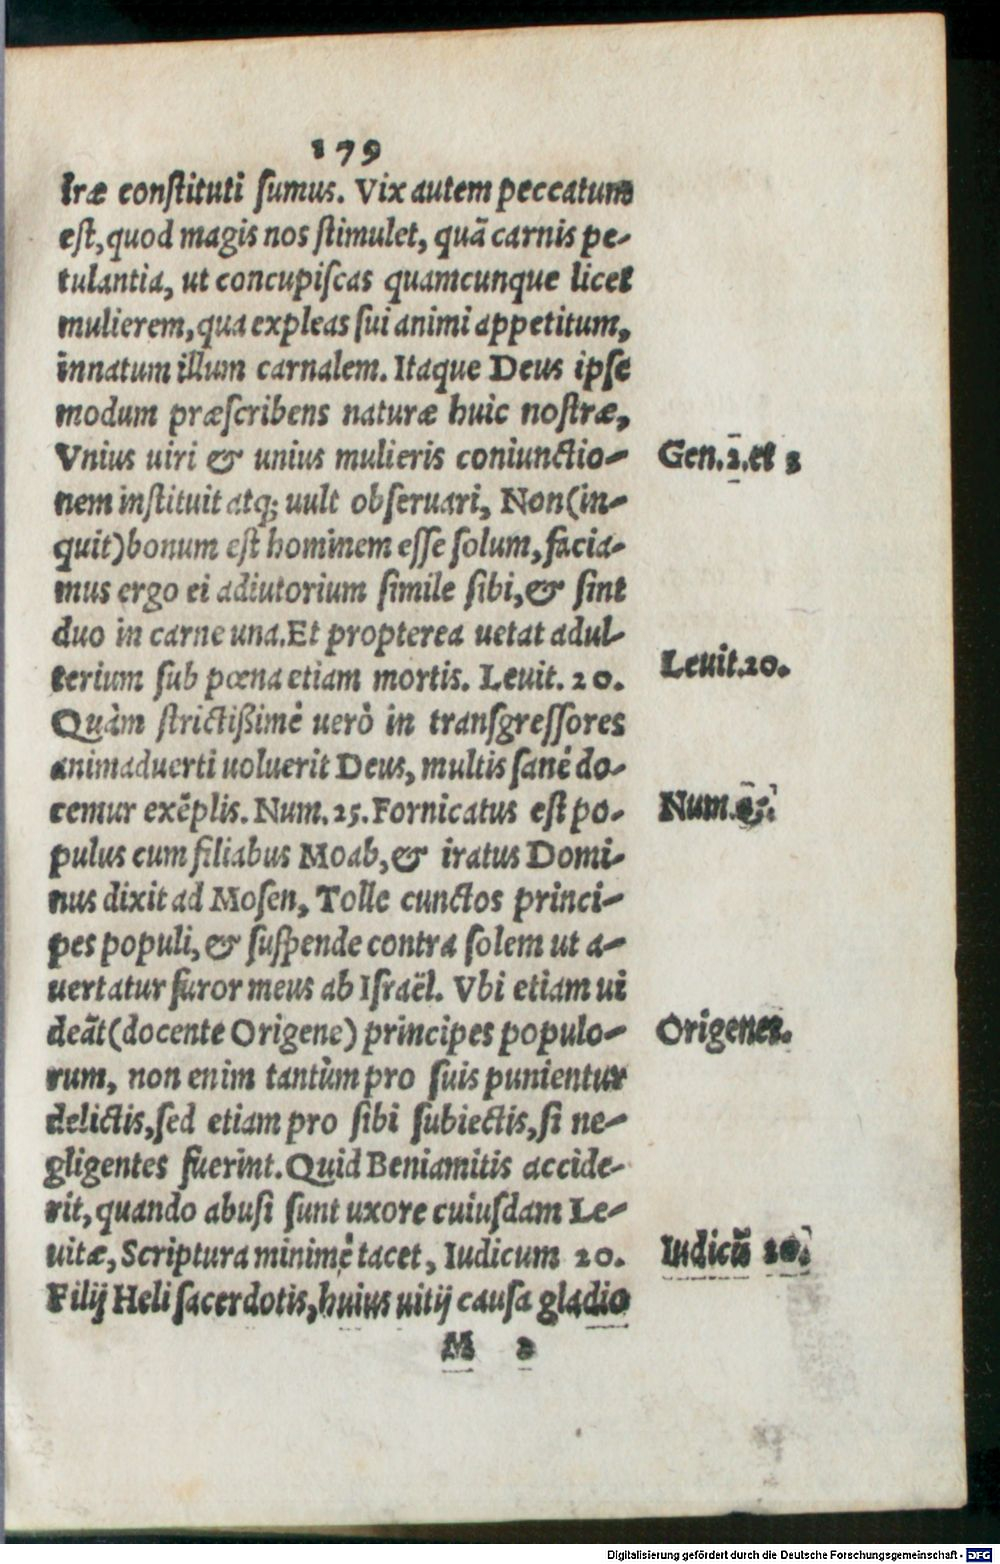 179
træ conſtituti ſumus. Vix autem peccatum
eſt, quod magis nos ſtimulet, quã carnis pe-
tulantia, ut concupiſcas quamcunque licet
mulierem, qua expleas ſui animi appetitum,
innatum illum carnalem. Itaque Deus ipſe
modum præſcribens naturæ huic noſtræ,
Vnius uiri & unius mulieris coniunctio-
Gen.2.et 3
nem inſtituit atq; uult obſeruari, Non (in-
quit) bonum eſt hominem eſſe ſolum, facia-
mus ergo ei adiutorium ſimile ſibi, & ſint
duo in carne una. Et propterea uetat adul-
terium ſub pœna etiam mortis. Leuit. 20.
Leuit.20.
Quàm ſtrictißimè uerò in transgreſſores
animaduerti uoluerit Deus, multis ſanè do-
cemur exẽplis. Num. 25. Fornicatus eſt po-
Num.25.
pulus cum filiabus Moab, & iratus Domi-
nus dixit ad Moſen, Tolle cunctos princi-
pes populi, & ſuſpende contra ſolem ut a-
uertatur furor meus ab Iſraël. Vbi etiam ui
deãt (docente Origene) principes populo-
Origenes.
rum, non enim tantùm pro ſuis punientur
delictis, ſed etiam pro ſibi ſubiectis, ſi ne-
gligentes fuerint. Quid Beniamitis accide-
rit, quando abuſi ſunt uxore cuiuſdam Le-
uitæ, Scriptura minimè tacet, Iudicum 20.
Iudicũ 20.
Filij Heli ſacerdotis, huius uitij cauſa gladio
M 2
Digitalisierung gefördert durch die Deutsche Forschungsgemeinschaft - DFG